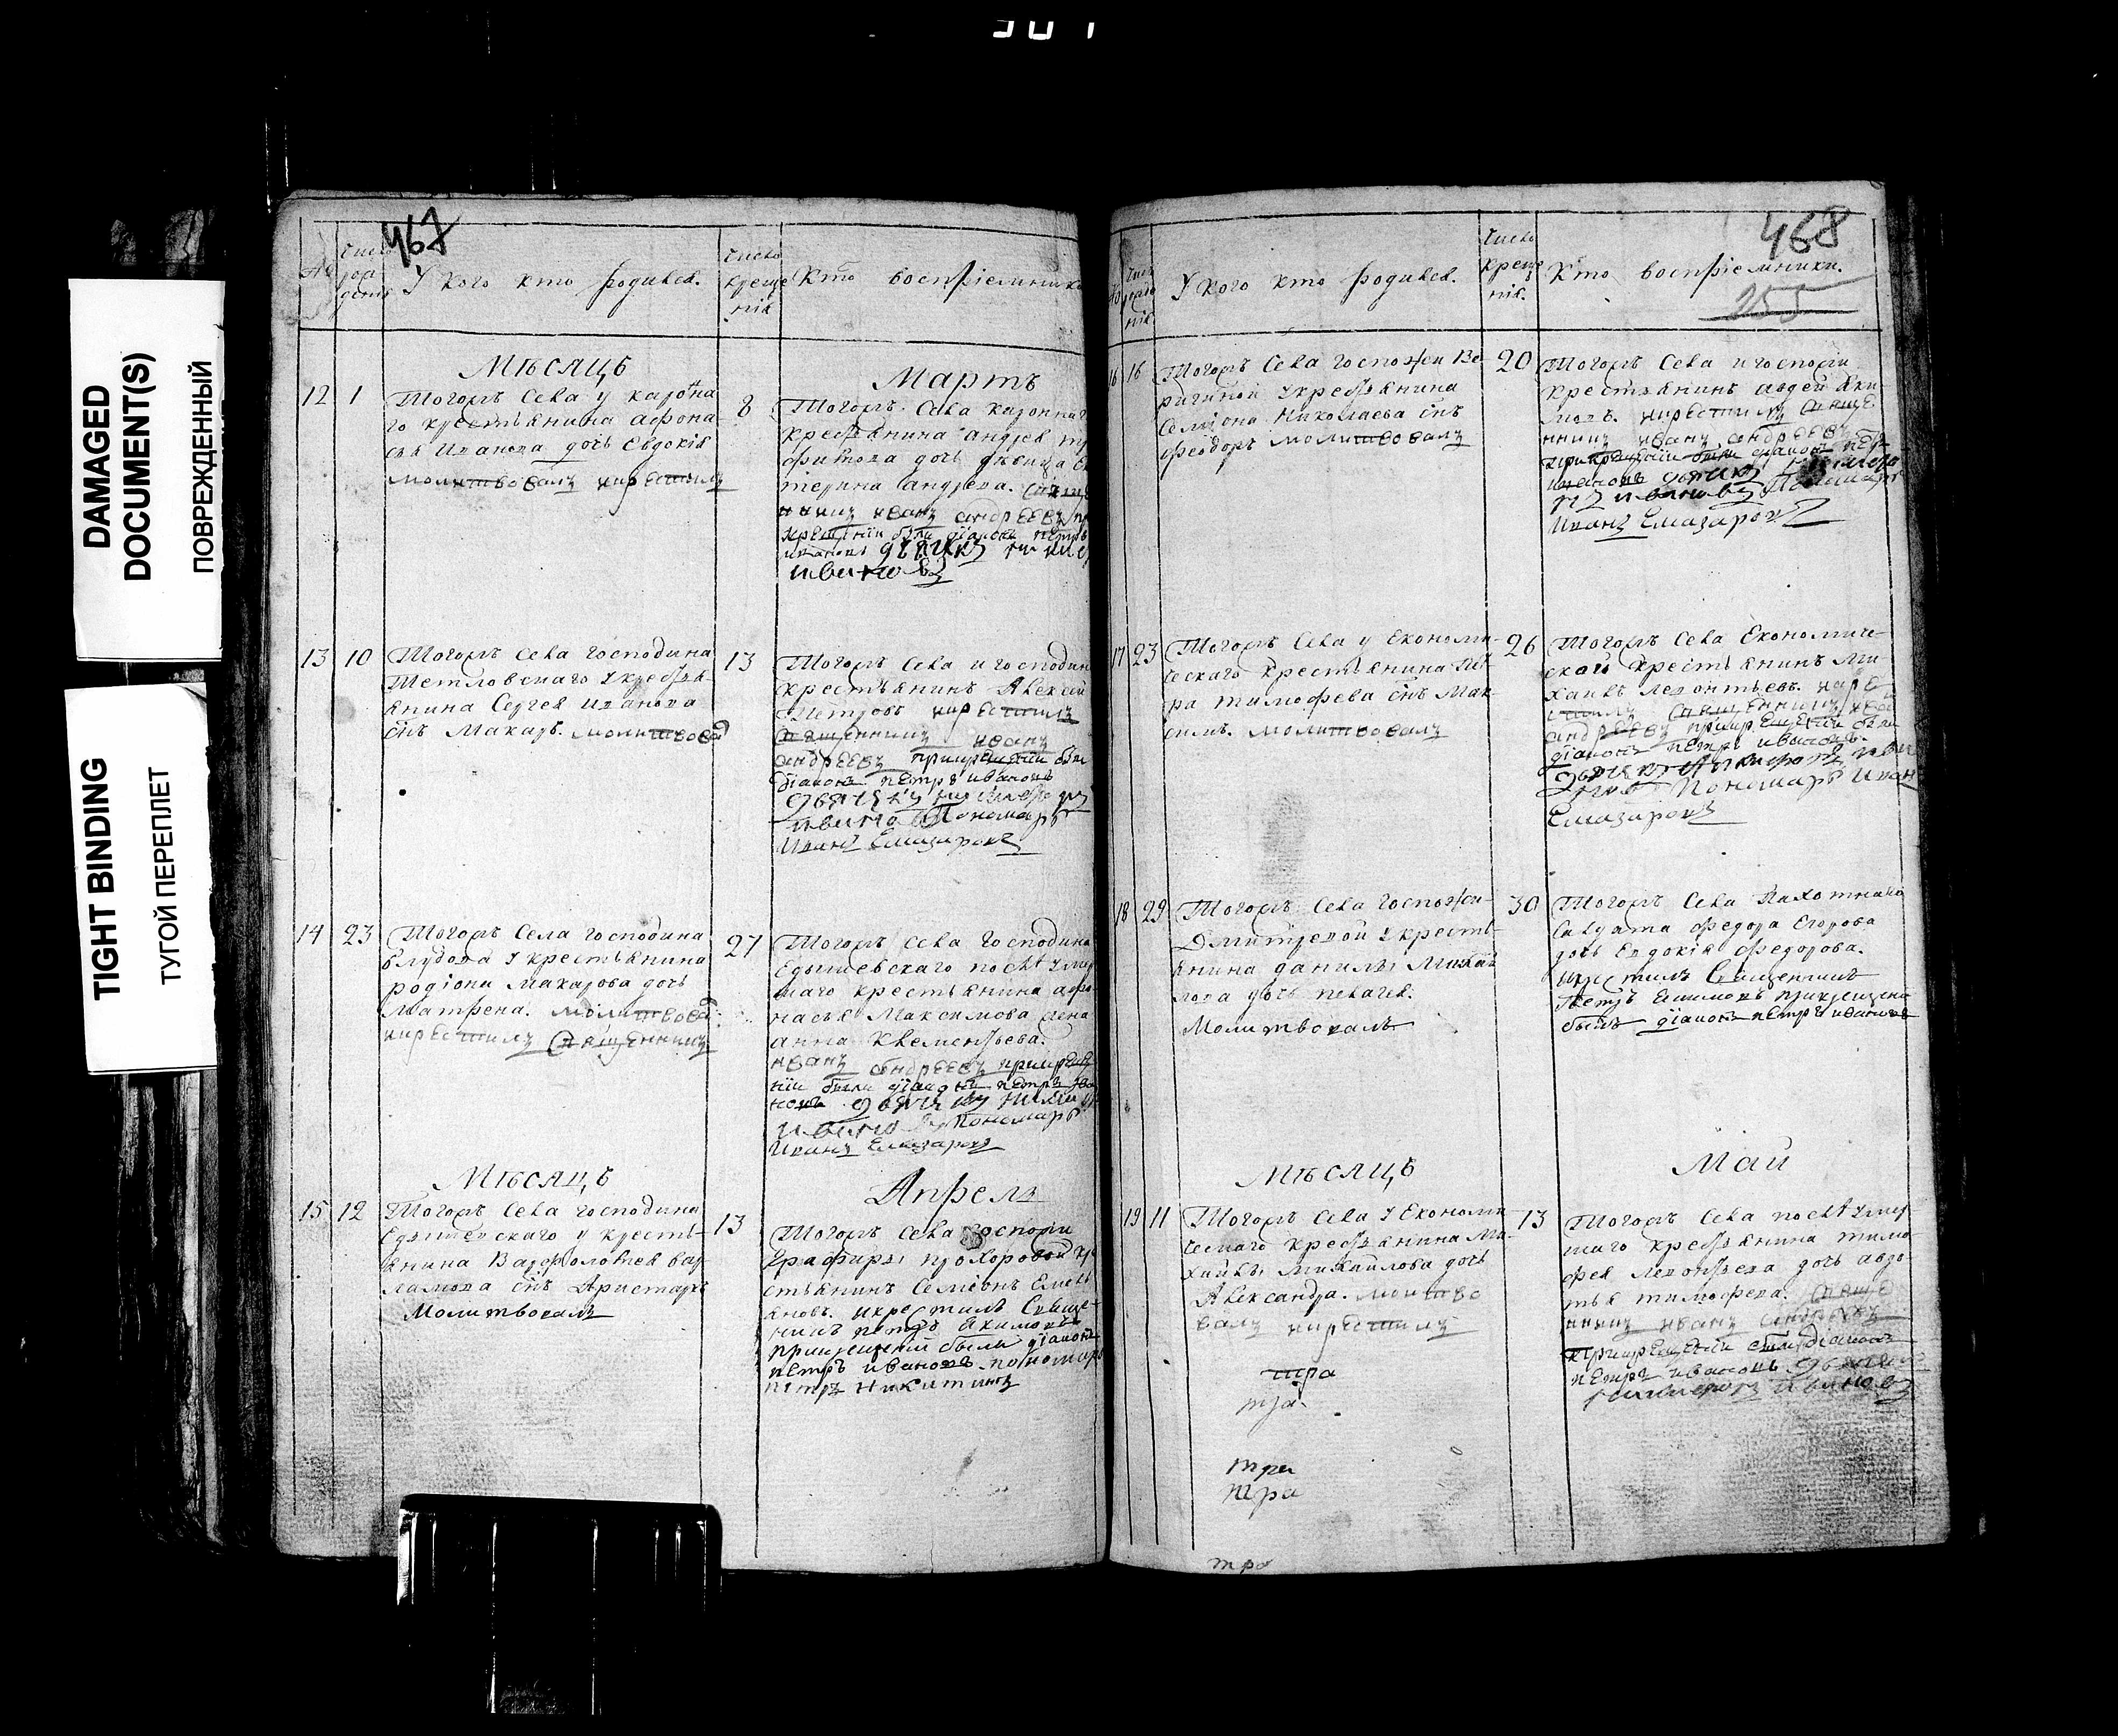 DAMAGED
DOCUMENT(S)
ПОВРЕЖДЕННЫЙ
TIGHT BINDING
ТУГОЙ ПЕРЕПЛЕТ
467
У кого кто родился.
Кто восприемники
Мѣсяцъ
Мартъ
12 1
Тогожъ Села у
го крестьянина Афона
сья Иванова дочь Евдокія
молитвовалъ и крестилъ
8
Тогожъ Села
крестьянина Андрея
дочь дѣвица
Андреева.
Иванъ Андреевъ
крещеніи были діаконъ Петръ
Ивановъ дьячикъ
Ивановъ
13 10
Тогожъ Села Господина
Шетловскаго у крестья
янина Сергея Иванова
снъ Макаръ. молитвовал
13
Тогожъ Села и господин
крестьянинъ Алексей
Петровъ и крестилъ
Священникъ Иванъ
Андреевъ при крещеніи были
діаконъ Петръ Ивановъ
дьячикъ
Ивановъ Пономарь
Иванъ Елизаровъ
14 23
Тогожъ Села Господина
Блудова у крестьянина
родіона Макарова дочь
Матрена. молитвовал
и крестилъ Священникъ
27
Тогожъ Села Господина
Едышевскаго послѣ умер
шаго крестьянина Афо
насья Максимова жена
анна Клементьева.
Иванъ Андреевъ при креще
ніи были діаконъ Петръ Ива
новъ дьячикъ
Ивановъ Пономарь
Иванъ Елизаровъ
Мѣсяцъ
Апрель
15 12
Тогожъ Села господина
Едышевскаго у кресть-
янина Варфоломея Вар
ламова снъ Аристархъ
Молитвовалъ
13
Тогожъ Села Госпожи
Графиры прохоровой кре
стьянинъ Семіонъ Емель
яновъ. и крестилъ Священ-
никъ Петръ Якимовъ
при крещеніи были діаконъ
Петръ Ивановъ пономарь
Петръ Никитинъ
468
255
У кого кто родился.
Кто восприемники.
16 16
Тогожъ Села госпожи Ве
ригиной у крестьянина
Семіона Николаева снъ
феодоръ молитвовалъ
20
Тогожъ Села и госпожи
крестьянинъ авдей Яки
мовъ. и крестилъ Священ
никъ Иванъ Андреевъ
при крещеніи были діаконъ Петръ
Ивановъ дьячикъ
Ивановъ Пономарь
Иванъ Елизаровъ
17 23
Тогожъ Села у Економи-
ческаго крестьянина Пет
ра тимофева снъ Мак-
симъ. молитвовалъ
26
Тогожъ Села Економиче-
скаго крестьянинъ Ми
хаилъ Леонтьевъ. и кре
стилъ Священникъ Иванъ
Андреевъ при крещеніи были
діаконъ Петръ Ивановъ
дьячикъ
Пономарь Иванъ
Елизаровъ
18 29
Тогожъ Села Госпожи
Дмитревой у кресть-
янина данилы Михай
лова дочь пелагея.
Молитвовалъ
30
Тогожъ Села Пахотнаго
Салдата Федора Егорова
дочь Евдокія Федорова.
и крестилъ Священникъ
Петръ Якимовъ при крещении
былъ діаконъ Петръ Ивановъ
Мѣсяцъ
Май
19 11
Тогожъ Села у Економи-
ческаго крестьянина Ми-
хайлы Михайлова дочь
Александра. молитво
валъ и крестилъ
13
Тогожъ Села послѣ умер
шаго крестьянина тимо
фея Леонтьева дочь авдо-
тья тимофева. Священ
никъ Иванъ Андреевъ
при крещеніи были діаконъ
Петръ Ивановъ дьячикъ
Ивановъ
тра
тра
тра
тра
тра